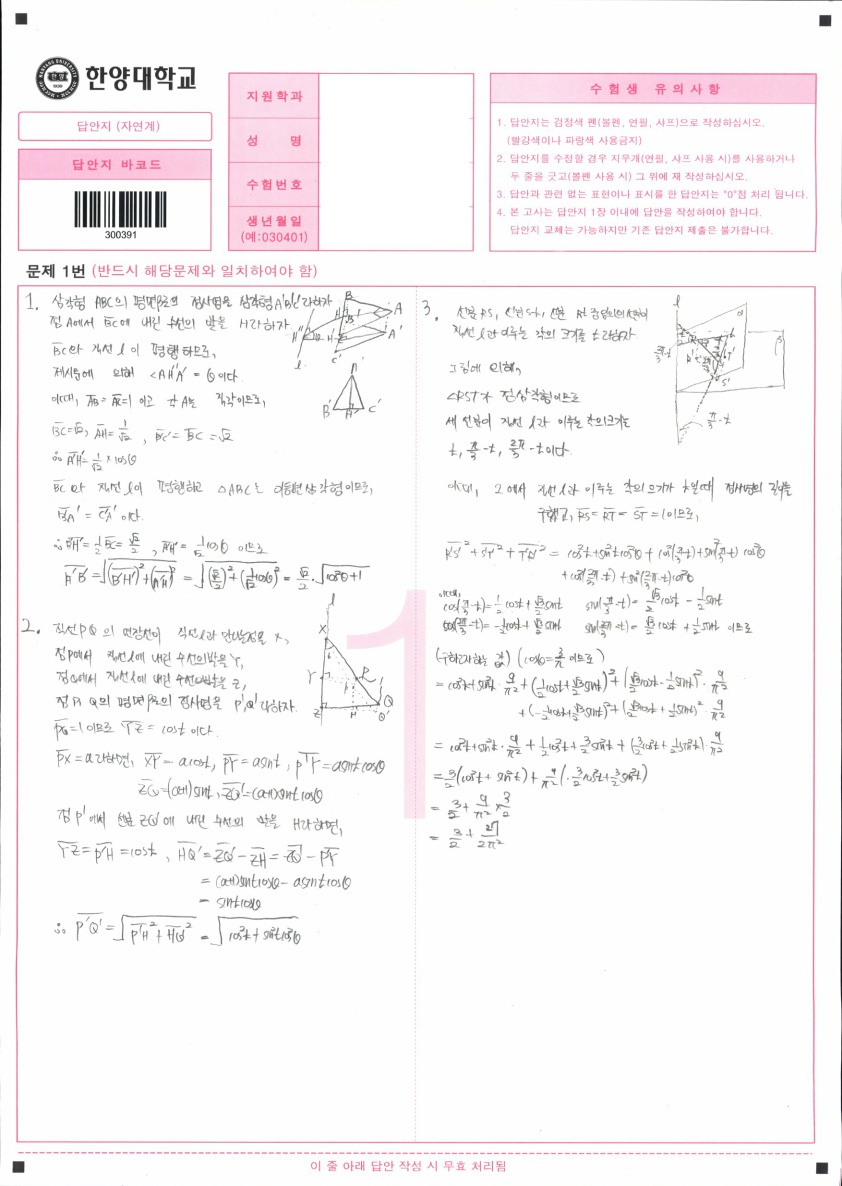 한양대학교
답안지 (자연계)
답안지 바코드
300391
지원학과
성 명
수험번호
생년월일
(예:030401)
수 험 생 유 의 사 항
1. 답안지는 검정색 펜(볼펜, 연필, 샤프)으로 작성하십시오.
(빨강색이나 파랑색 사용금지)
2. 답안지를 수정할 경우 지우개(연필, 샤프 사용 시)를 사용하거나
두 줄을 긋고(볼펜 사용 시) 그 위에 재 작성하십시오.
3. 답안과 관련 없는 표현이나 표시를 한 답안지는 "0"점 처리 됩니다.
4. 본 고사는 답안지 1장 이내에 답안을 작성하여야 합니다.
답안지 교체는 가능하지만 기존 답안지 제출은 불가합니다.
문제 1번 (반드시 해당문제와 일치하여야 함)
1. 삼각형 ABC의 평면β로의 정사영을 삼각형 A'B'C'라하자
점 A에서 BC에 내린 수선의 발을 H라하자
BC와 직선 l이 평행하므로,
제시문에 의해 <AH'A' = θ이다.
이때, AB=AC=1 이고 각 A는 직각이므로,
BC=√2, AH=1/√2, B'C'=BC=√2
∴ A'H'=1/√2×cosθ
BC와 직선 l이 평행하고 △ABC는 이등변삼각형이므로,
B'A' = C'A' 이다.
∴ B'H'=1/2 BC=√2/2, A'H'=1/√2 cosθ 이므로
A'B'=√((B'H')²+(A'H')²) = √((√2/2)²+(1/√2 cosθ)²) = √2/2·√(cos²θ+1)
2. 직선PQ의 연장선이 직선 l과 만나는점을 X,
점P에서 직선l에 내린 수선의발을 Y,
점Q에서 직선l에 내린 수선의발을 Z,
점 P, Q의 평면β로의 정사영을 P',Q'라하자.
PQ=1이므로 YZ = cost 이다.
PX=a라하면, XY=acost, PY=asint, P'Y=asintcosθ
ZQ=(a+1)sint, ZQ'=(a+1)sintcosθ
점 P'에서 선분 ZQ'에 내린 수선의 발을 H라하면,
YZ=P'H=cost, HQ'=ZQ'-ZH=ZQ'-P'Y
= (a+1)sintcosθ-asintcosθ
= sintcosθ
∴ P'Q'=√(P'H²+HQ'²) = √(cos²t+sin²tcos²θ)
3.
직선 l과 이루는 각의 크기를 t라하자
그림에 의해,
△RST가 정삼각형이므로
세 선분이 직선 l과 이루는 각의크기는
t, π/3-t, 2π/3-t이다.
이때, 2에서 직선l과 이루는 각의 크기가 t일때 정사영의 길이를
구했고, RS=RT=ST=1이므로,
= cos²t+sin²tcos²θ+cos²(π/3-t)+sin²(π/3-t)cos²θ
+cos²(2π/3-t)+sin²(2π/3-t)cos²θ
이때,
cos(π/3-t)=1/2cost+√3/2sint sin(π/3-t)=√3/2cost-1/2sint
cos(2π/3-t)=-1/2cost+√3/2sint sin(2π/3-t)=√3/2cost+1/2sint 이므로
(구하고자하는 값) (cosθ=3/π 이므로)
=cos²t+sin²t·9/π²+(1/2cost+√3/2sint)²+(√3/2cost-1/2sint)²·9/π²
+(-1/2cost+√3/2sint)²+(√3/2cost+1/2sint)²·9/π²
=cos²t+sin²t·9/π²+1/2cos²t+3/2sin²t+(3/2cos²t+1/2sin²t)·9/π²
=3/2(cos²t+sin²t)+9/π²(3/2cos²t+3/2sin²t)
=3/2+9/π²×3/2
=3/2+27/2π²
이 줄 아래 답안 작성 시 무효 처리됨